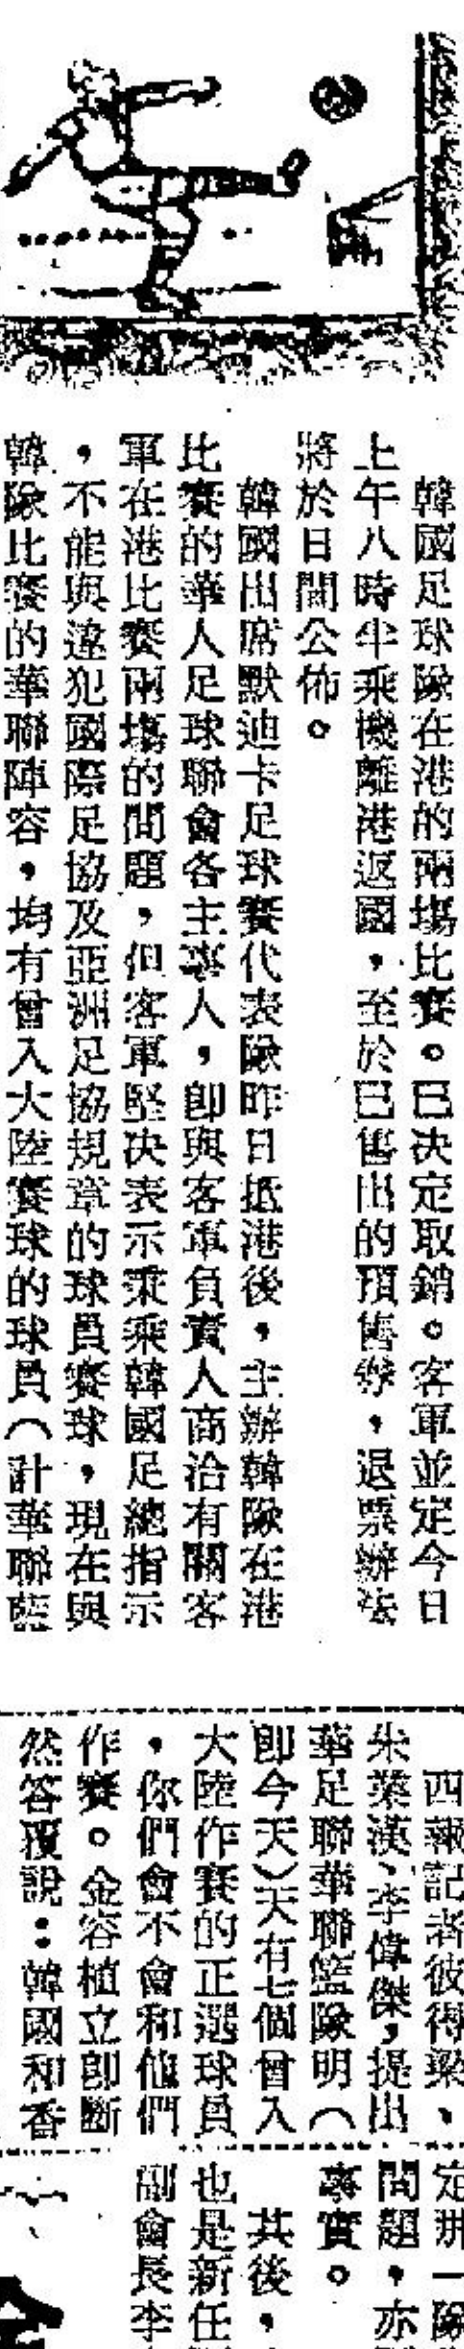 韓國足球隊在港的兩場比賽。已决定取銷。客軍並定今日
上午八時半乘機離港返國，至於已售出的預售券，退票辦法
將於日間公佈。
韓國出席默迪卡足球賽代表隊昨日抵港後，主辦韓隊在港
比賽的華人足球聯會各主事人，即與客軍負責人商洽有關客
軍在港比賽兩場的問題，但客軍堅决表示秉乘韓國足總指示
，不能與違犯國際足協及亞洲足協規章的球員賽球，現在與
韓隊比賽的華聯陣容，均有曾入大陸賽球的球員（計華聯藍
西報記者彼得梁、
朱業漢、李偉傑，提出
華足聯華聯籃隊明（
即今天）天有七個曾入
大陸作賽的正選球員
，你們會不會和他們
作賽。金容植立即斷
然答覆說：韓國和香
定那一隊
問題，亦
事實。
其後，
也是新任
副會長李